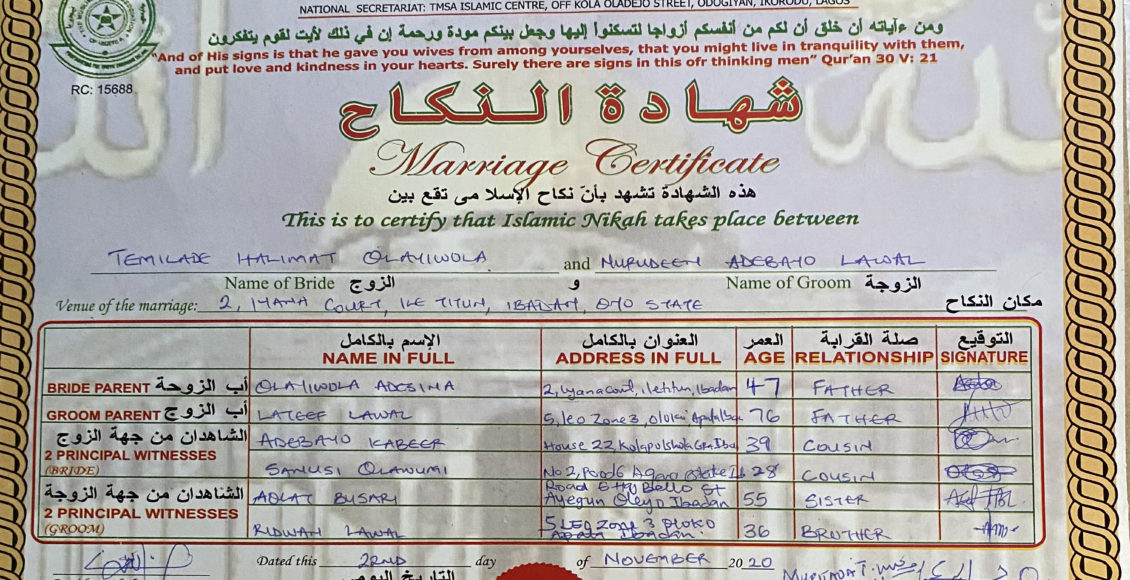 NATIONAL SECRETARIAT: TMSA ISLAMIC CENTRE, OFF KOLA OLADEJO STREET, ODOGIYAN, IKORODU, LAGOS
ومن ءاياته أن خلق أن لكم من أنفسكم أزواجا لتسكنوا إليها وجعل بينكم مودة ورحمة إن في ذلك لأيت لقوم يتفكرون
"And of His signs is that he gave you wives from among yourselves, that you might live in tranquility with them,
and put love and kindness in your hearts. Surely there are signs in this ofr thinking men" Qur'an 30 V: 21
RC: 15688
شهادة النكاح
Marriage Certificate
هذه الشهادة تشهد بأنّ نكاح الإسلا مى تقع بين
This is to certify that Islamic Nikah takes place between
TEMILADE HALIMAT OLAYIWOLA and NURUDEEN ADEBAYO LAWAL
Name of Bride الزوج و Name of Groom الزوجة
Venue of the marriage: 2, IYANA COURT, ILE TITUN, IBADAN, OYO STATE مكان النكاح
الإسم بالكامل العنوان بالكامل العمر صلة القرابة التوقيع
NAME IN FULL ADDRESS IN FULL AGE RELATIONSHIP SIGNATURE
BRIDE PARENT أب الزوجة OLAYIWOLA ADESINA 2, Iyana Court, Iletitun, Ibadan 47 FATHER
GROOM PARENT أب الزوج LATEEF LAWAL 5, Leo Zone 3, 76 FATHER
الشاهدان من جهة الزوج ADEBAYO KABEER House 22, 39 COUSIN
2 PRINCIPAL WITNESSES
(BRIDE) SANUSI OLAWUMI No 2, 28 COUSIN
الشاهدان من جهة الزوجة AOLAT BUSARI Road Bello St
Ayegun Oleyo Ibadan 55 SISTER
2 PRINCIPAL WITNESSES
(GROOM) RIDWAN LAWAL 5 LEO Zone 3 OLOKO
Apata Ibadan 36 BROTHER
Dated this 22ND day of NOVEMBER 2020
التاريخ اليوم